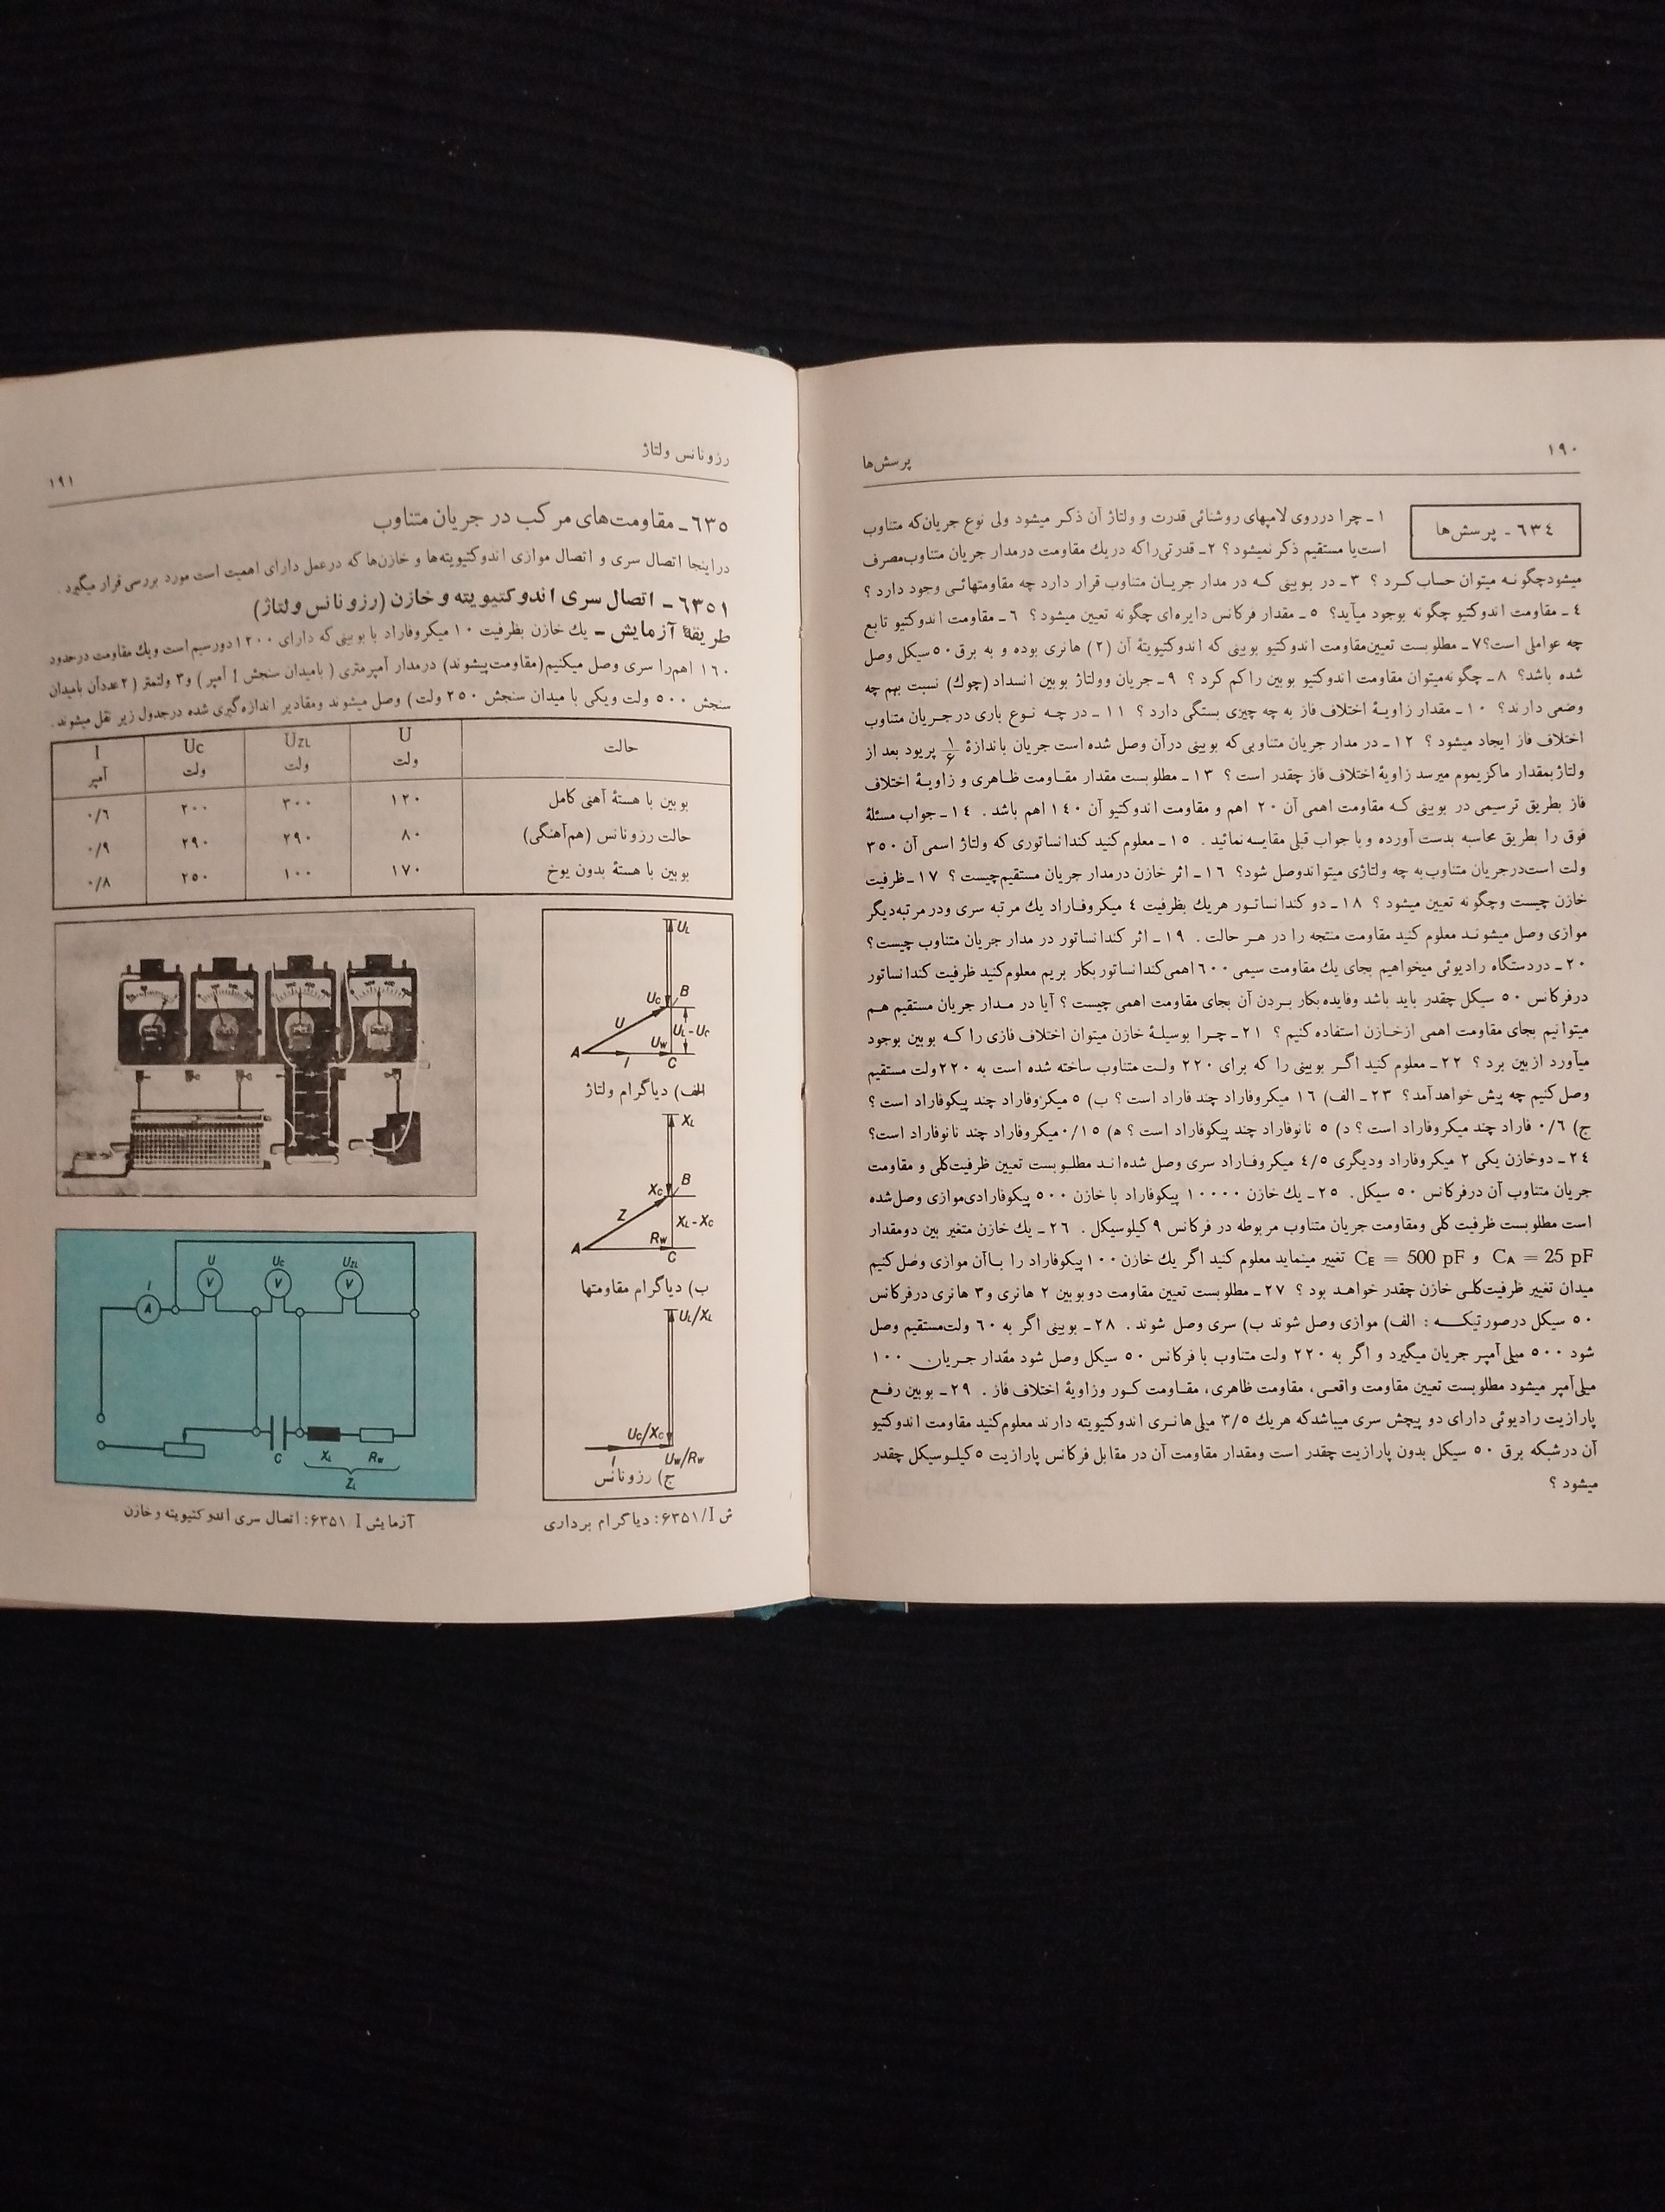 ۱۹۰
پرسش‌ها
۶۳۴ ـ پرسش‌ها
۱ ـ چرا درروی لامپهای روشنائی قدرت و ولتاژ آن ذکر میشود ولی نوع جریان‌که متناوب
است‌یا مستقیم ذکر نمیشود ؟ ۲ـ قدرتی‌راکه دریك مقاومت درمدار جریان متناوب‌مصرف
میشودچگونه میتوان حساب‌کرد ؟ ۳ ـ در بوبینی که در مدار جریان متناوب قرار دارد چه مقاومتهائی وجود دارد ؟
۴ ـ مقاومت اندوکتیو چگونه بوجود میآید؟ ۵ ـ مقدار فرکانس دایره‌ای چگونه تعیین میشود؟ ۶ ـ مقاومت اندوکتیو تابع
چه عواملی است؟ ۷ ـ مطلوبست تعیین‌مقاومت اندوکتیو بوبینی که اندوکتیویتهٔ آن (۲) هانری بوده و به برق ۵۰ سیکل وصل
شده باشد؟ ۸ ـ چگونه‌میتوان مقاومت اندوکتیو بوبین راکم کرد ؟ ۹ ـ جریان وولتاژ بوبین انسداد (چوك) نسبت بهم چه
وضعی دارند؟ ۱۰ ـ مقدار زاویهٔ اختلاف فاز به چه چیزی بستگی دارد ؟ ۱۱ ـ در چه نوع باری درجریان متناوب
اختلاف فاز ایجاد میشود ؟ ۱۲ ـ در مدار جریان متناوبی‌که بوبینی درآن وصل شده است جریان باندازهٔ ۱/۶ پریود بعد از
ولتاژبمقدار ماکزیموم میرسد زاویهٔ اختلاف فاز چقدر است ؟ ۱۳ ـ مطلوبست مقدار مقاومت ظاهری و زاویهٔ اختلاف
فاز بطریق ترسیمی در بوبینی که مقاومت اهمی آن ۲۰ اهم و مقاومت اندوکتیو آن ۱۴۰ اهم باشد . ۱۴ ـ جواب مسئلهٔ
فوق را بطریق محاسبه بدست آورده و با جواب قبلی مقایسه نمائید . ۱۵ ـ معلوم کنید کندانساتوری که ولتاژ اسمی آن ۳۵۰
ولت است‌درجریان متناوب‌به چه ولتاژی میتواندوصل شود؟ ۱۶ ـ اثر خازن درمدار جریان مستقیم‌چیست ؟ ۱۷ ـ ظرفیت
خازن چیست وچگونه تعیین میشود ؟ ۱۸ ـ دو کندانساتور هریك بظرفیت ۴ میکروفاراد یك مرتبه سری ودرمرتبه‌دیگر
موازی وصل میشوند معلوم کنید مقاومت منتجه را در هر حالت . ۱۹ ـ اثر کندانساتور در مدار جریان متناوب چیست؟
۲۰ ـ دردستگاه رادیوئی میخواهیم بجای یك مقاومت سیمی ۶۰۰ اهمی‌کندانساتور بکار بریم معلوم‌کنید ظرفیت کندانساتور
درفرکانس ۵۰ سیکل چقدر باید باشد وفایده‌بکار بردن آن بجای مقاومت اهمی چیست ؟ آیا در مدار جریان مستقیم هم
میتوانیم بجای مقاومت اهمی ازخازن استفاده کنیم ؟ ۲۱ ـ چرا بوسیلهٔ خازن میتوان اختلاف فازی را که بوبین بوجود
میآورد ازبین برد ؟ ۲۲ ـ معلوم کنید اگر بوبینی را که برای ۲۲۰ ولت متناوب ساخته شده است به ۲۲۰ ولت مستقیم
وصل کنیم چه پیش خواهدآمد؟ ۲۳ ـ الف) ۱۶ میکروفاراد چند فاراد است ؟ ب) ۵ میکروفاراد چند پیکوفاراد است ؟
ج) ۰/۶ فاراد چند میکروفاراد است ؟ د) ۵ نانوفاراد چند پیکوفاراد است ؟ ه) ۰/۱۵ میکروفاراد چند نانوفاراد است؟
۲۴ ـ دوخازن یکی ۲ میکروفاراد ودیگری ۴/۵ میکروفاراد سری وصل شده‌اند مطلوبست تعیین ظرفیت‌کلی و مقاومت
جریان متناوب آن درفرکانس ۵۰ سیکل. ۲۵ ـ یك خازن ۱۰۰۰۰ پیکوفاراد با خازن ۵۰۰ پیکوفارادی‌موازی وصل‌شده
است مطلوبست ظرفیت کلی ومقاومت جریان متناوب مربوطه در فرکانس ۹ کیلوسیکل . ۲۶ ـ یك خازن متغیر بین دومقدار
CA = 25 pF و CE = 500 pF تغییر مینماید معلوم کنید اگر یك خازن ۱۰۰ پیکوفاراد را باآن موازی وصل‌کنیم
میدان تغییر ظرفیت‌کلی خازن چقدر خواهد بود ؟ ۲۷ ـ مطلوبست تعیین مقاومت دوبوبین ۲ هانری و۳ هانری درفرکانس
۵۰ سیکل درصورتیکه : الف) موازی وصل شوند ب) سری وصل شوند . ۲۸ ـ بوبینی اگر به ۶۰ ولت‌مستقیم وصل
شود ۵۰۰ میلی‌آمپر جریان میگیرد و اگر به ۲۲۰ ولت متناوب با فرکانس ۵۰ سیکل وصل شود مقدار جریان ۱۰۰
میلی‌آمپر میشود مطلوبست تعیین مقاومت واقعی، مقاومت ظاهری، مقاومت کور وزاویهٔ اختلاف فاز . ۲۹ ـ بوبین رفع
پارازیت رادیوئی دارای دو پیچش سری میباشدکه هریك ۳/۵ میلی هانری اندوکتیویته دارند معلوم‌کنید مقاومت اندوکتیو
آن درشبکه برق ۵۰ سیکل بدون پارازیت چقدر است ومقدار مقاومت آن در مقابل فرکانس پارازیت ۵ کیلوسیکل چقدر
میشود ؟
رزونانس ولتاژ
۱۹۱
۶۳۵ ـ مقاومت‌های مرکب در جریان متناوب
دراینجا اتصال سری و اتصال موازی اندوکتیویته‌ها و خازن‌ها که درعمل دارای اهمیت است مورد بررسی قرار میگیرد .
۶۳۵۱ ـ اتصال سری اندوکتیویته و خازن (رزونانس ولتاژ)
طریقهٔ آزمایش ـ یك خازن بظرفیت ۱۰ میکروفاراد با بوبینی که دارای ۱۲۰۰ دورسیم است ویك مقاومت درحدود
۱۶۰ اهم‌را سری وصل میکنیم(مقاومت‌پیشوند) درمدار آمپرمتری ( بامیدان سنجش ۱ آمپر) و۳ ولتمتر (۲عددآن بامیدان
سنجش ۵۰۰ ولت ویکی با میدان سنجش ۲۵۰ ولت) وصل میشوند ومقادیر اندازه‌گیری شده درجدول زیر نقل میشوند.
حالت U UZL UC I
ولت ولت ولت آمپر
بوبین با هستهٔ آهنی کامل ۱۲۰ ۳۰۰ ۲۰۰ ۰/۶
حالت رزونانس (هم‌آهنگی) ۸۰ ۲۹۰ ۲۹۰ ۰/۹
بوبین با هستهٔ بدون یوخ ۱۷۰ ۱۰۰ ۲۵۰ ۰/۸
UL
UC B
U
UL-UC
UW
A I C
الف) دیاگرام ولتاژ
XL
XC B
Z
XL-XC
RW
A C
ب) دیاگرام مقاومتها
UL/XL
UC/XC
I UW/RW
ج) رزونانس
ش ۶۳۵۱/I: دیاگرام برداری
I U UC UZL
A V V V
C XL RW
ZL
آزمایش ۶۳۵۱/I: اتصال سری اندوکتیویته وخازن